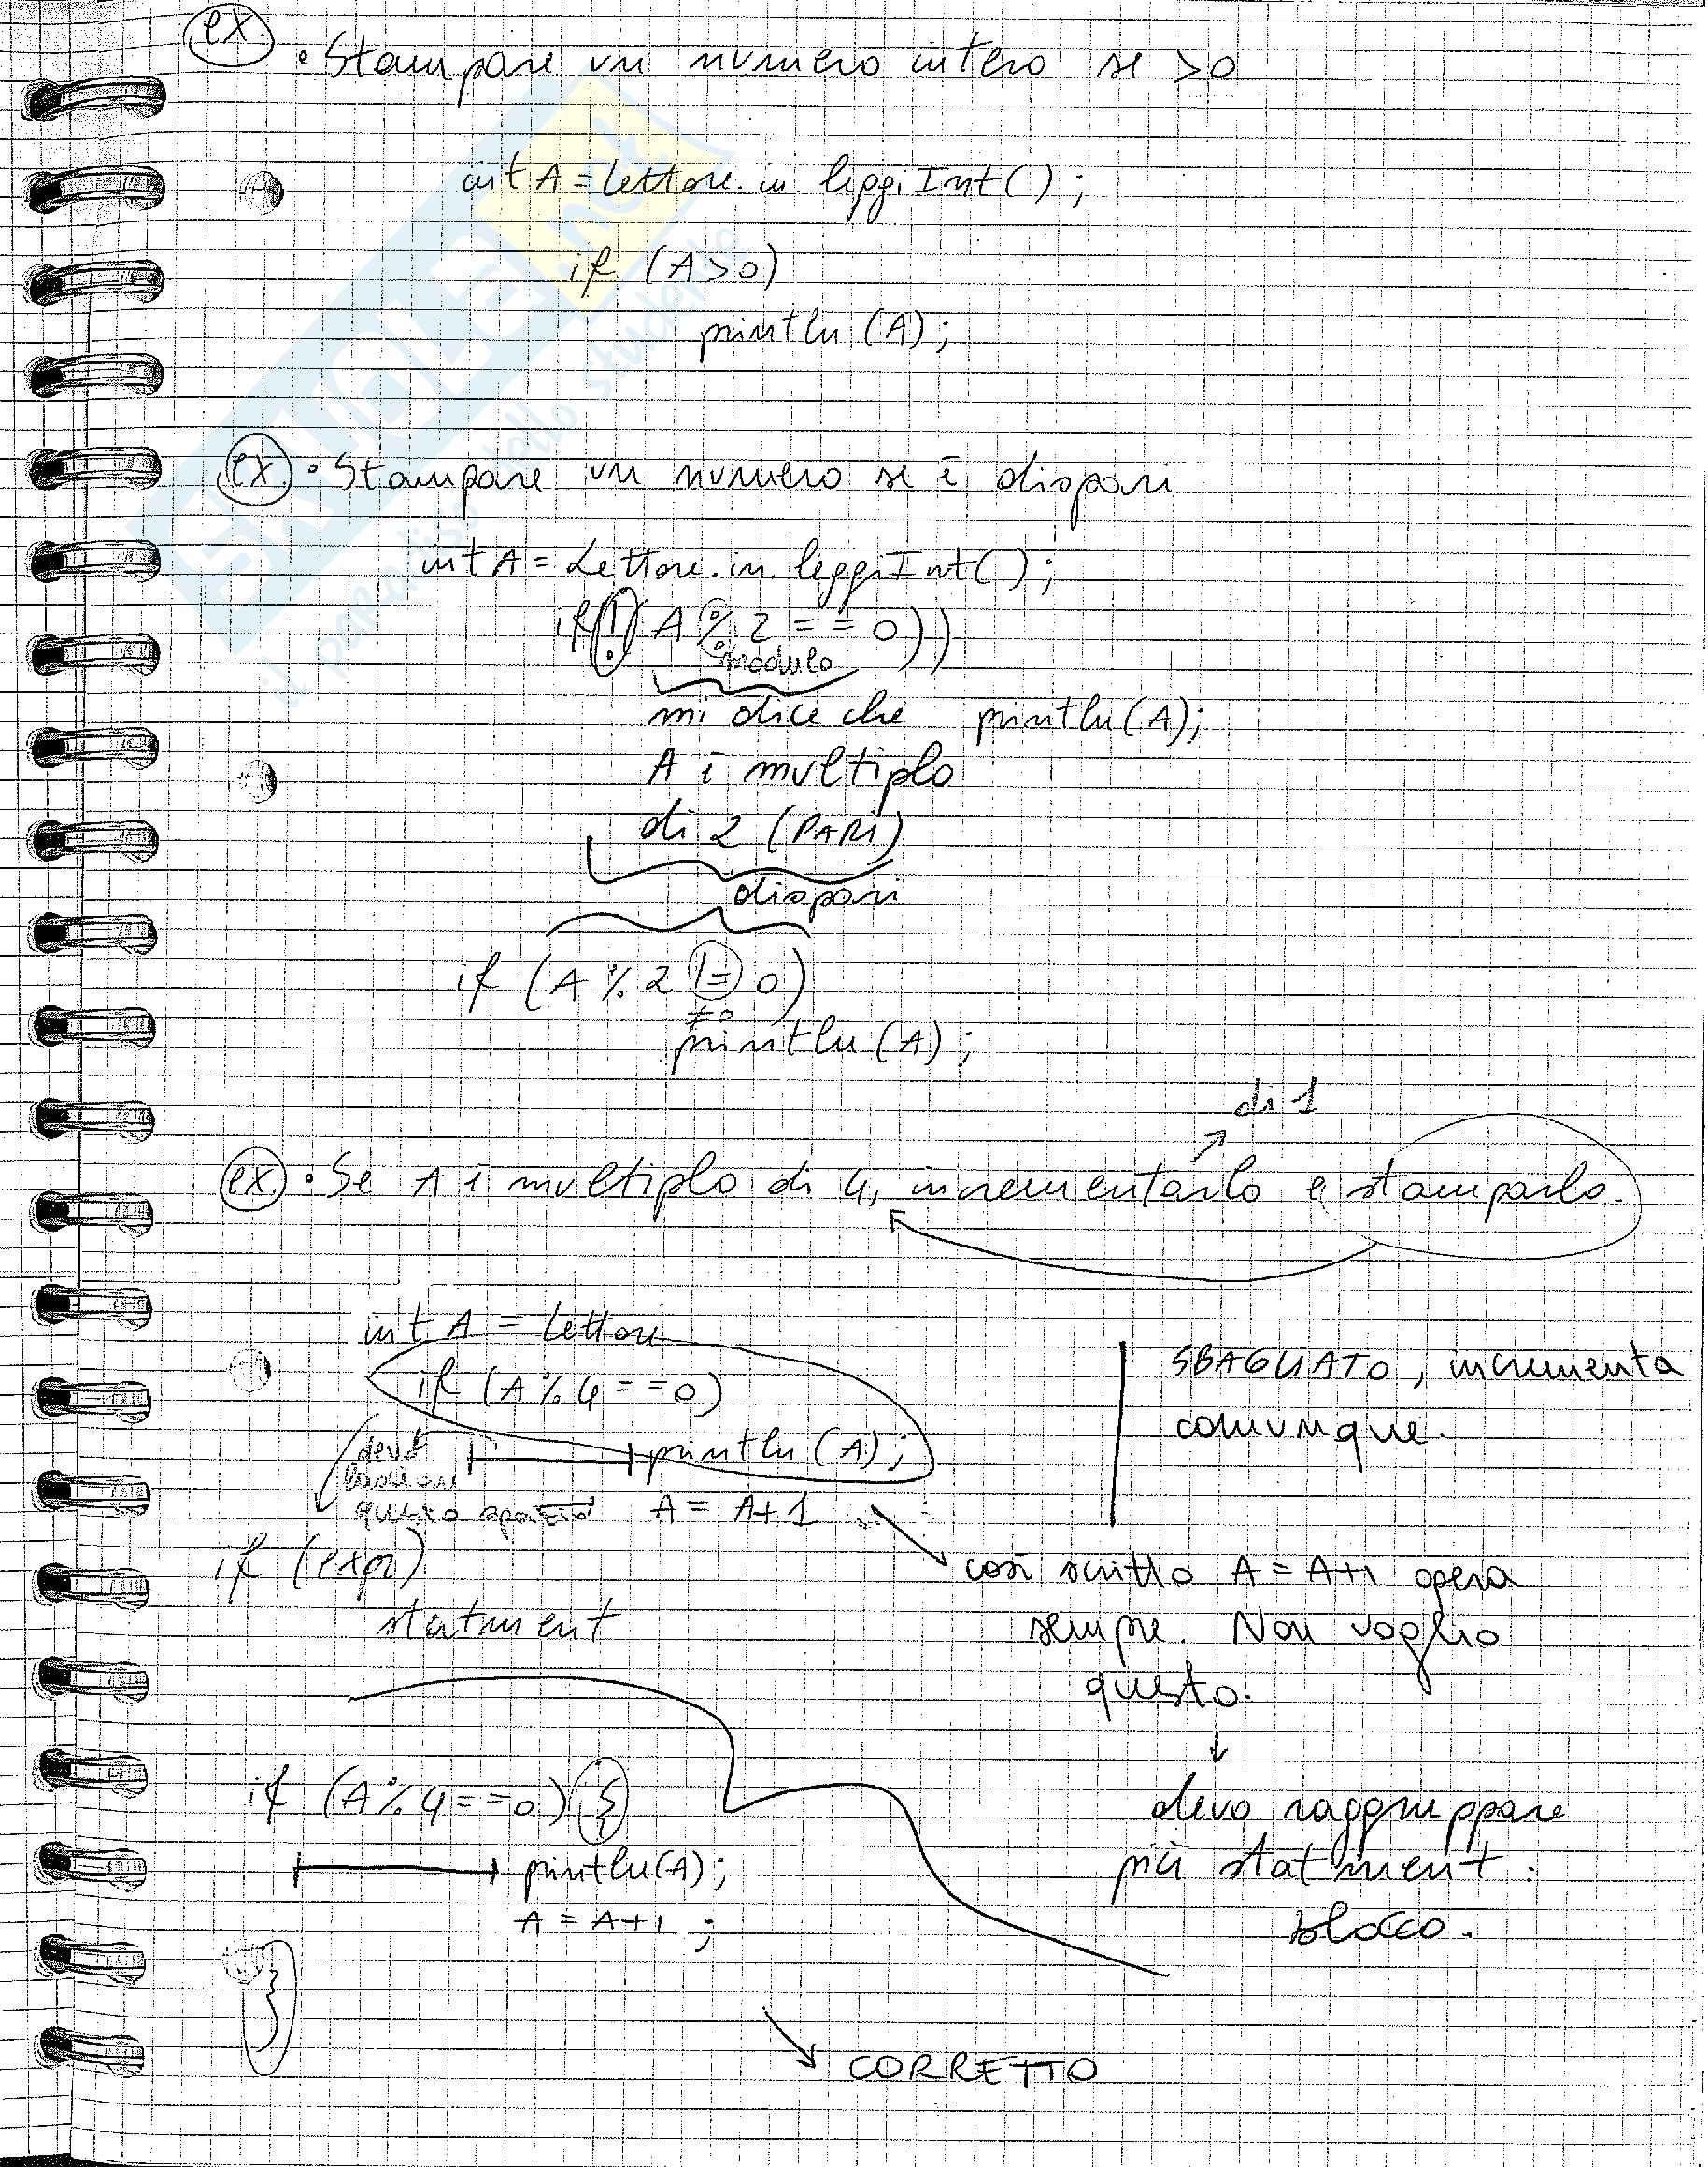 ex.
• Stampare un numero intero se >0
int A = Lettore.in.leggiInt();
if (A>0)
println(A);
ex. • Stampare un numero se è dispari
int A = Lettore.in.leggiInt();
if(!(A%2==0))
modulo
mi dice che println(A);
A è multiplo
di 2 (PARI)
dispari
if (A%2 != 0)
≠0
println(A);
di 1
ex. • Se A è multiplo di 4, incrementarlo e stamparlo.
int A = Lettore
if (A%4==0)
println(A);
devo
lasciare
questo spazio
A = A+1
SBAGLIATO, incrementa
comunque.
if (expr)
statment
così scritto A = A+1 opera
sempre. Non voglio
questo.
↓
devo raggruppare
più statment:
blocco.
if (A%4==0) {
println(A);
A = A+1 ;
}
CORRETTO